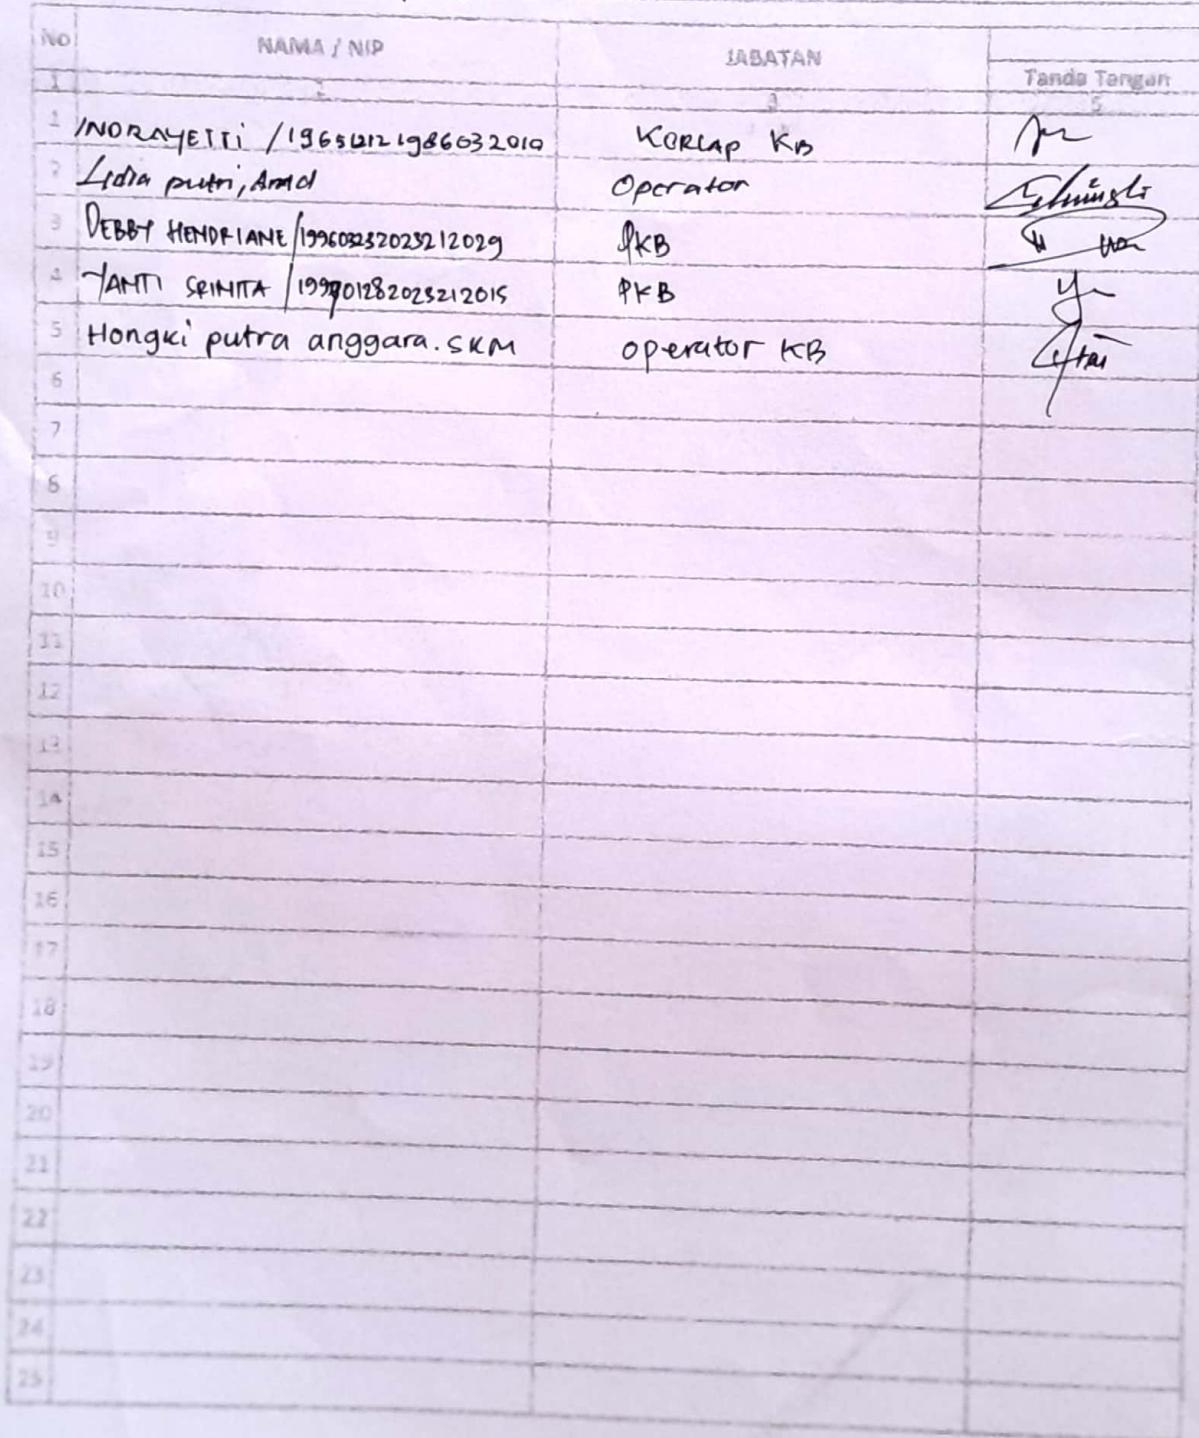 No NAMA / NIP JABATAN
Tanda Tangan
1 2 3 5
1 INDRAYETTi / 196512121986032010 KORLAP KB
2 Lidia putri, Amd Operator
3 DEBBY HENDRIANE / 199603232023212029 PKB
4 YANTI SRINITA / 199901282023212015 PKB
5 Hongki putra anggara. SKM operator KB
6
7
8
9
10
11
12
13
14
15
16
17
18
19
20
21
22
23
24
25